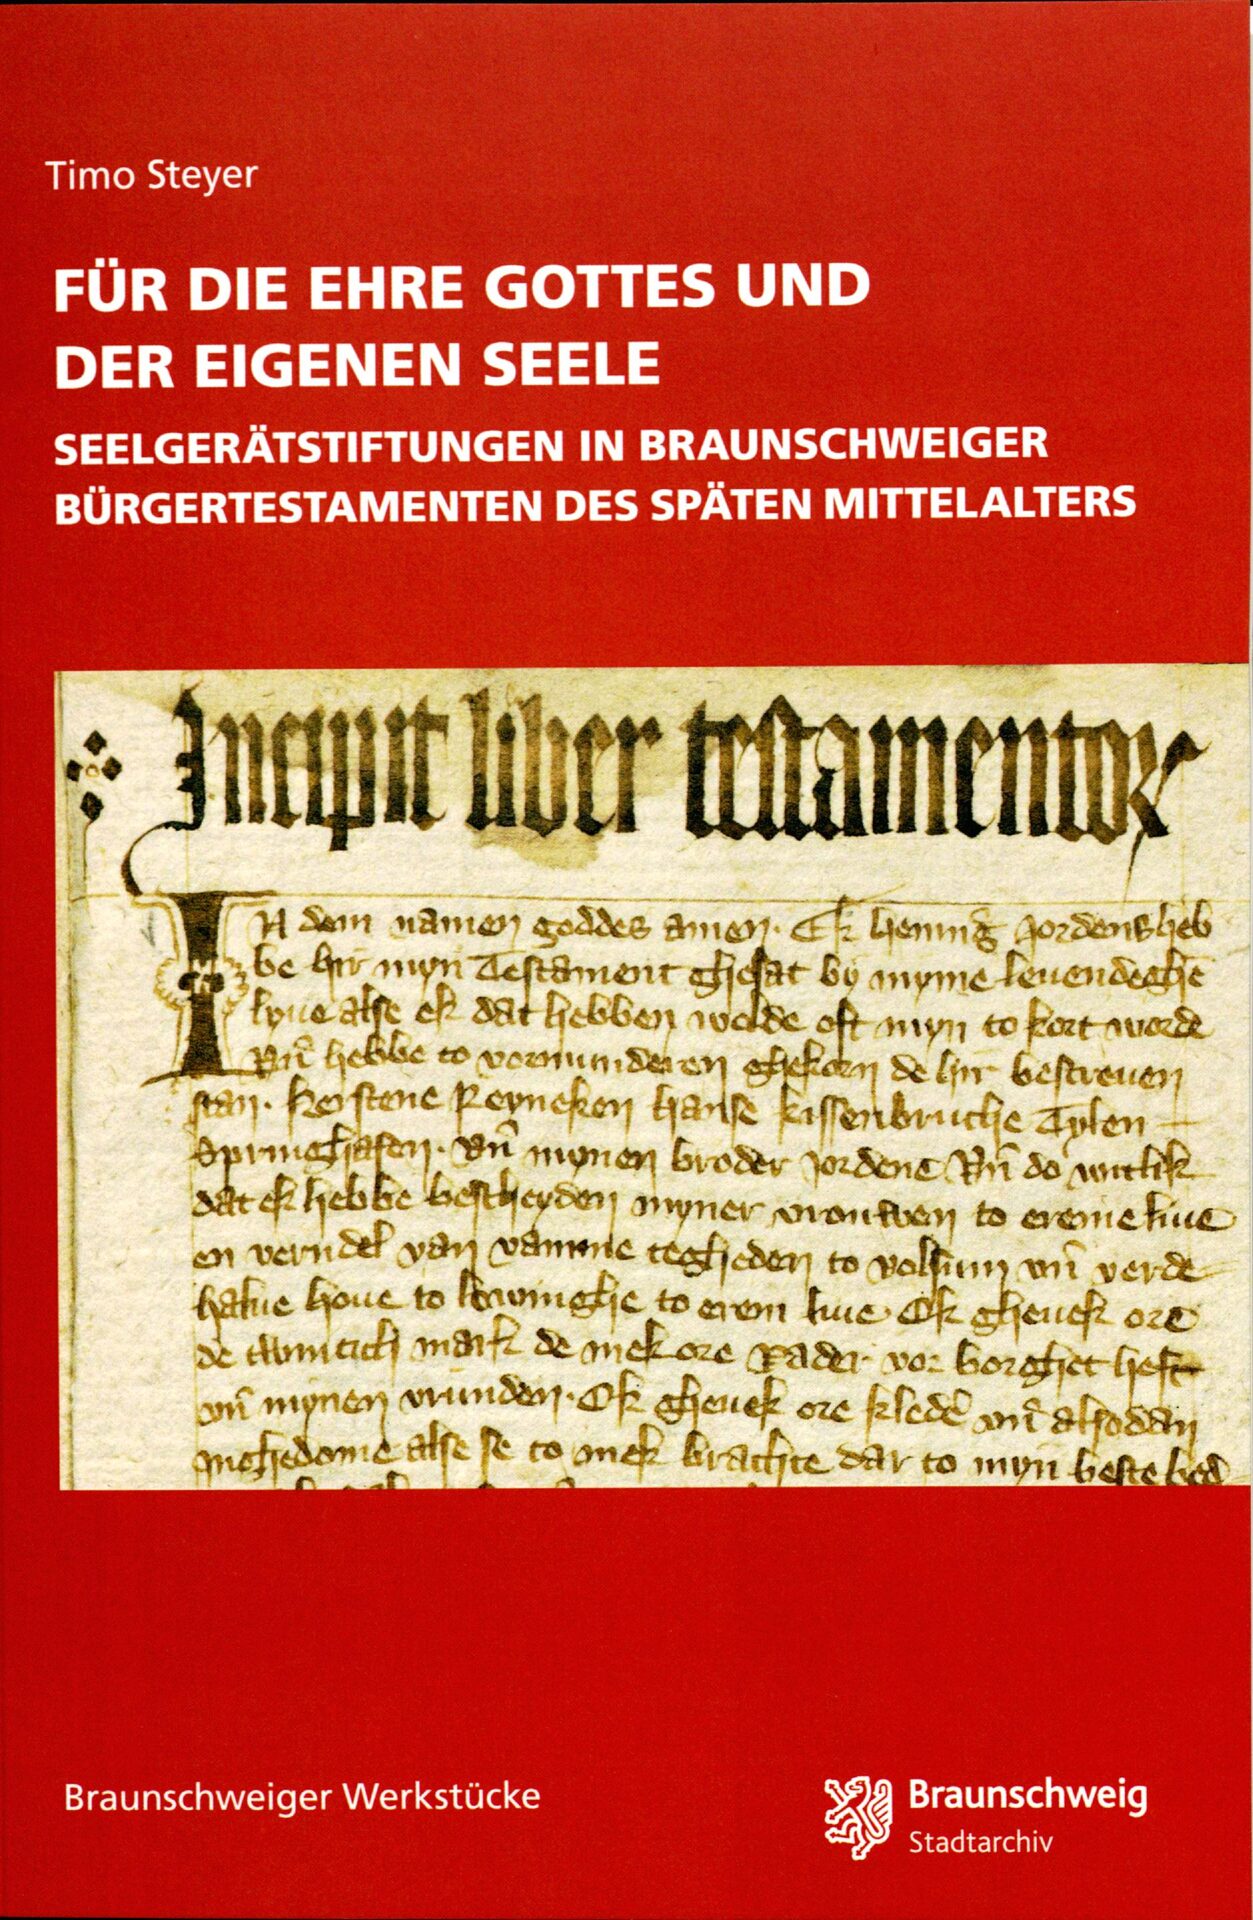 Timo Steyer
FÜR DIE EHRE GOTTES UND
DER EIGENEN SEELE
SEELGERÄTSTIFTUNGEN IN BRAUNSCHWEIGER
BÜRGERTESTAMENTEN DES SPÄTEN MITTELALTERS
Incipit liber testamentoꝝ
IN dem namen goddes amen. Ek hennig Jordens heb
be hir myn Testament ghesat by myme leuendeghē
lyue alse ek dat hebben wolde oft myn to kort worde
Vn̄ hebbe to vormunderen ghekorn de hir bescreuen
stan. kerstene Reyneken hanse kissenbruche Tylen
Springhasen. Vn̄ mynen broder Jordene Vn̄ do witlik
dat ek hebbe bescheyden myner vrouwen to ereme liue
en verndel van vamme tegheden to volsum vn̄ verde
halue houe to to erem liue. Ok gheuek ore
de twintich mark de mek ore vader vor borghet heft
vn̄ mynen vrunden. Ok gheuek ore kledē vn̄ alsodan
inghedome alse se to mek brachte dar to myn beste bed
Braunschweiger Werkstücke
Braunschweig
Stadtarchiv